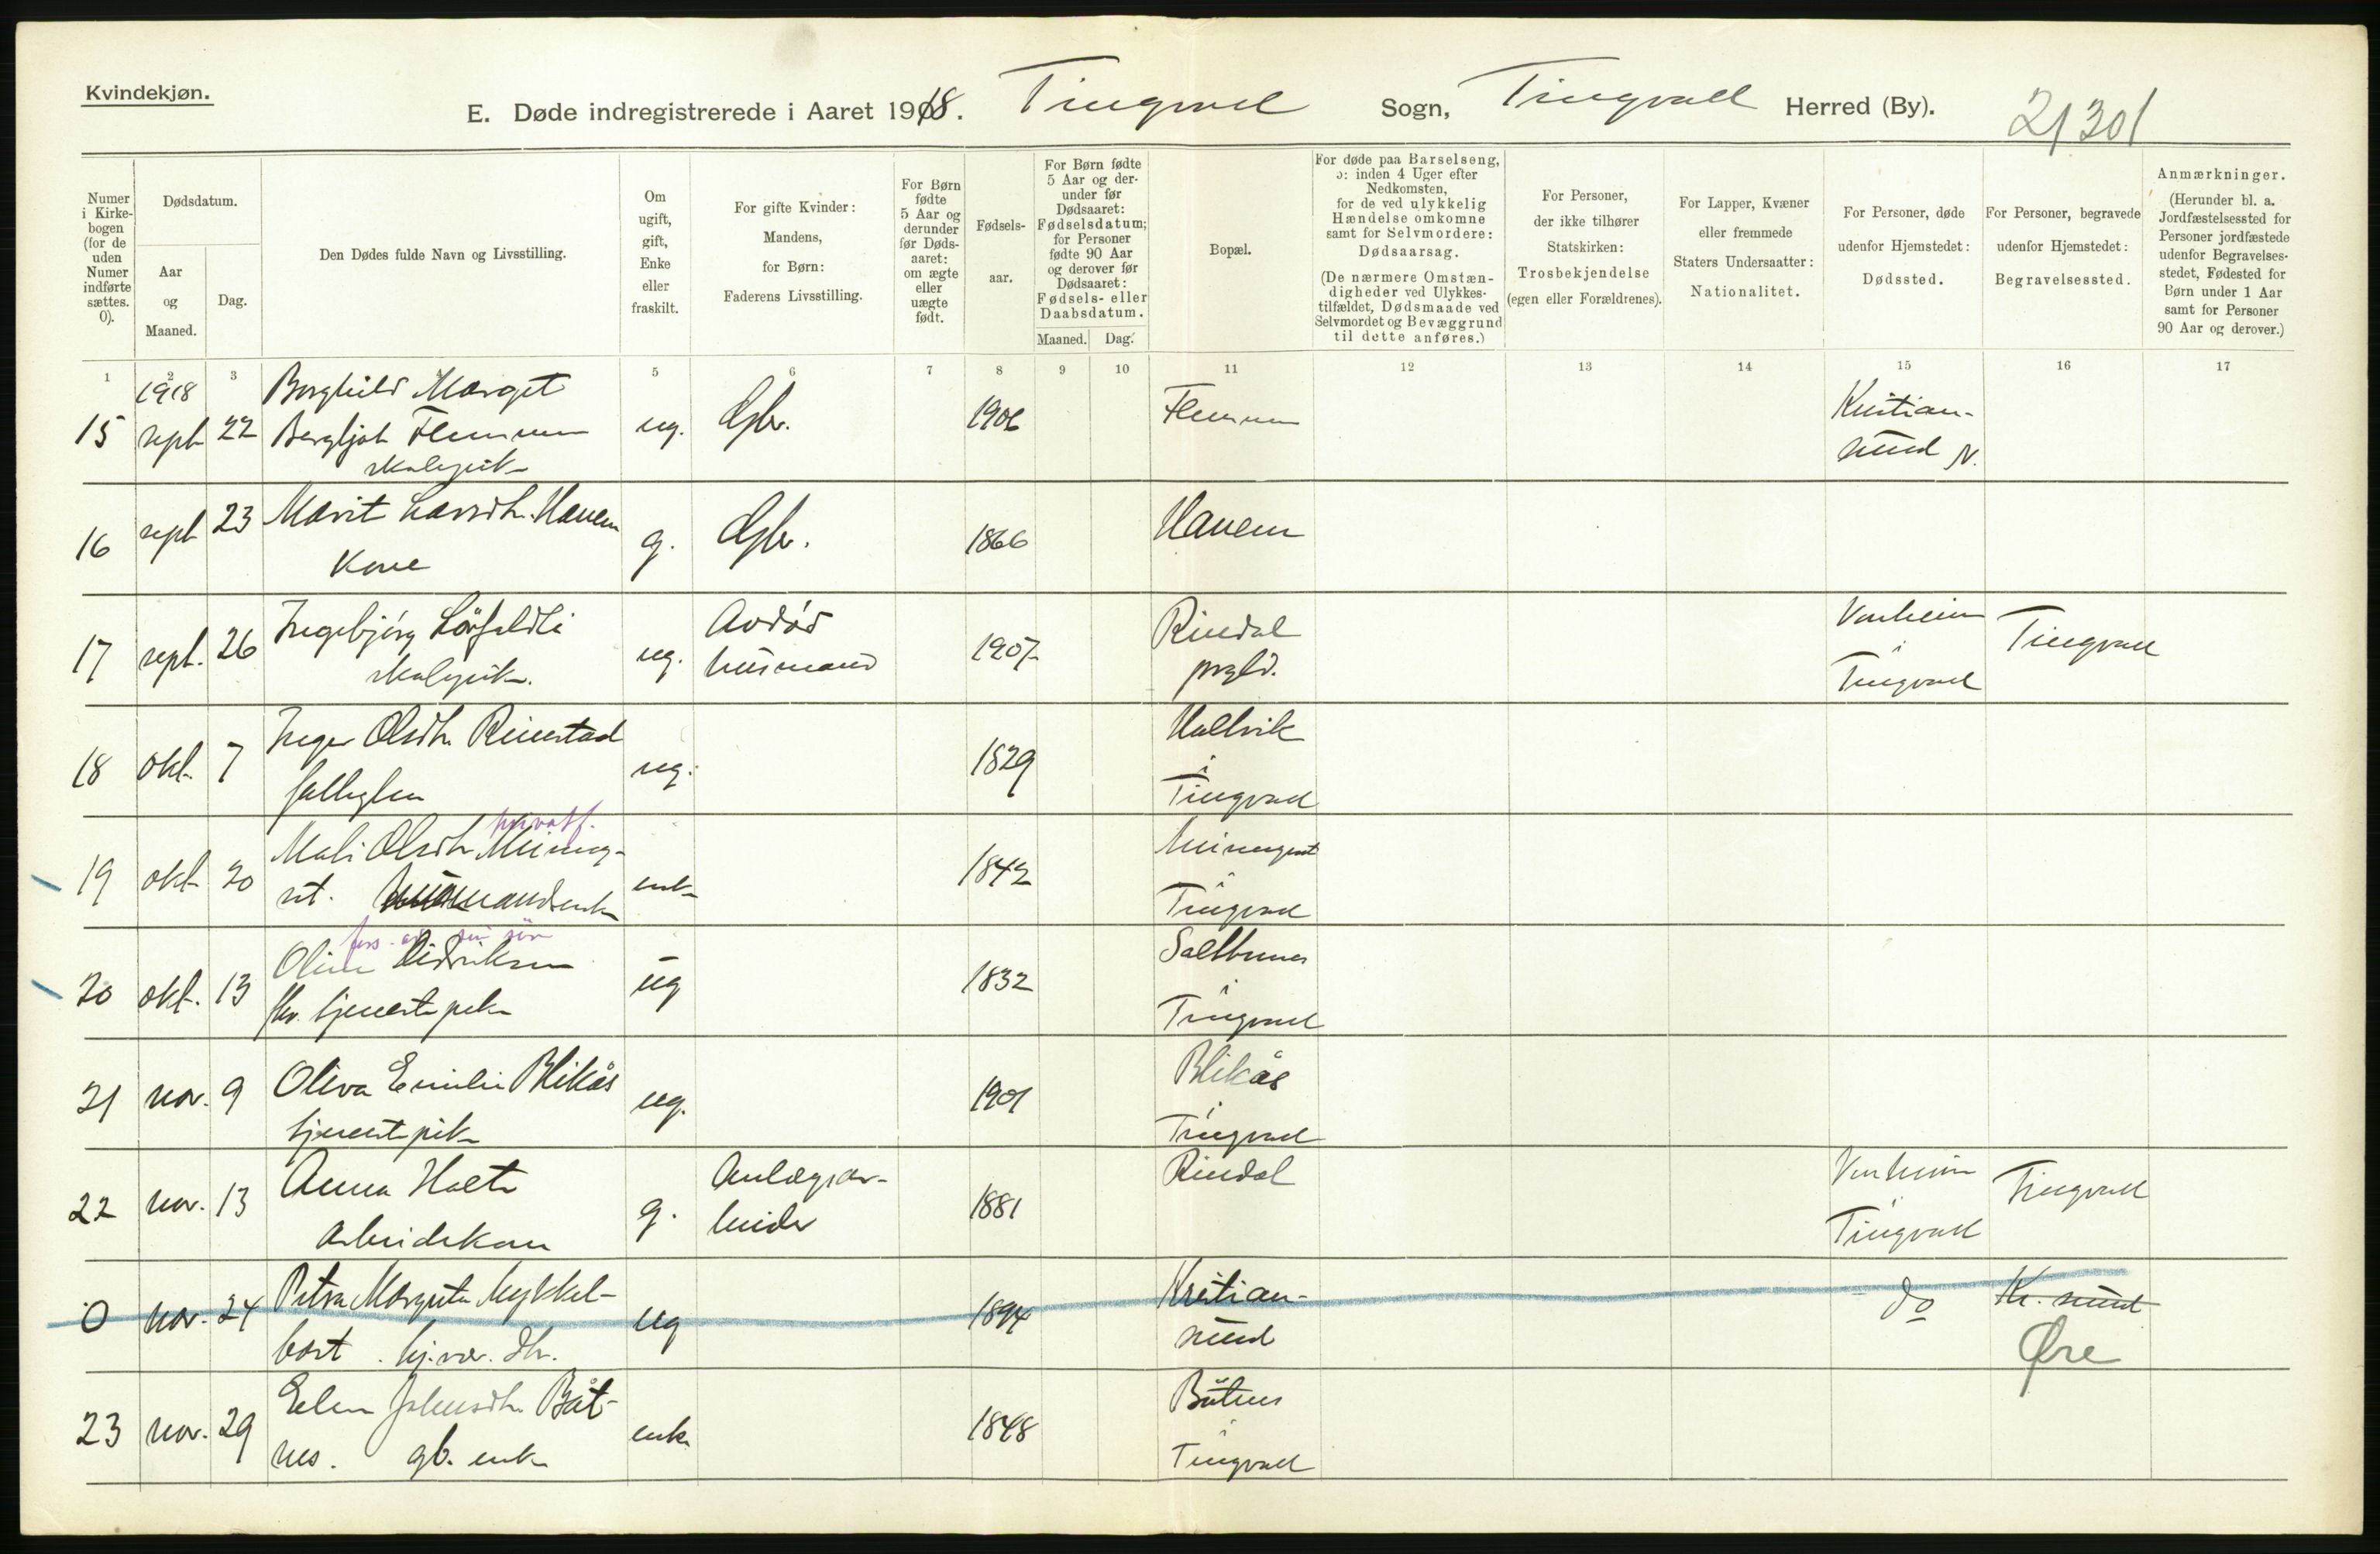 Kvindekjøn.
E. Døde indregistrerede i Aaret 1918. Tingvoll Sogn, Tingvoll Herred (By). 21301
Numer i Kirkebogen (for de uden Numer indførte sættes. 0).
Dødsdatum.
Aar og Maaned.
Dag.
Den Dødes fulde Navn og Livsstilling.
Om ugift, gift, Enke eller fraskilt.
For gifte Kvinder: Mandens, for Børn: Faderens Livsstilling.
For Børn fødte 5 Aar og derunder før Døds-aaret: om ægte eller uægte født.
Fødsels-aar.
For Børn fødte 5 Aar og der-under før Dødsaaret: Fødselsdatum; for Personer fødte 90 Aar og derover før Dødsaaret: Fødsels- eller Daabsdatum.
Maaned. Dag.
Bopæl.
For døde paa Barselseng, ɔ: inden 4 Uger efter Nedkomsten, for de ved ulykkelig Hændelse omkomne samt for Selvmordere: Dødsaarsag.
(De nærmere Omstæn-digheder ved Ulykkes-tilfældet, Dødsmaade ved Selvmordet og Bevæggrund til dette anføres.)
For Personer, der ikke tilhører Statskirken: Trosbekjendelse (egen eller Forældrenes).
For Lapper, Kvæner eller fremmede Staters Undersaatter: Nationalitet.
For Personer, døde udenfor Hjemstedet: Dødssted.
For Personer, begravede udenfor Hjemstedet: Begravelsessted.
Anmærkninger.
(Herunder bl. a. Jordfæstelsessted for Personer jordfæstede udenfor Begravelses-stedet, Fødested for Børn under 1 Aar samt for Personer 90 Aar og derover.)
1 2 3 5 6 7 8 9 10 11 12 13 14 15 16 17
1918 Borghild Marget
15 sept 22 Bergljot Flemmen ug. Gbr. 1906 Flemmen Kristian-
skolepike sund N.
16 sept 23 Marit Larsdtr. Hanem g. Gbr. 1866 Hanem
Kone
17 sept. 26 Ingebjørg Løsfeldli ug. Avdød husmand 1907 Rindal prgld. i Tingvoll Tingvoll
skolepike.
18 okt. 7 Inger Olsdtr. Rimstad ug. 1829 Hallvik i Tingvoll
fattiglem
privatf.
19 okt 20 Mali Olsdtr enke 1842 Tingvoll
husmandsenke
fors. av sin søn
20 okt. 13 Oline Didriksen ug 1832 i Tingvoll
fhv. tjenestepike
21 nov. 9 Oliva Emilie Blikås ug. 1901 Blikås i Tingvoll
tjenestepike
22 nov. 13 Anna Holte g. Anlægsar-beider 1881 Rindal i Tingvoll Tingvoll
Arbeiderkone
0 nov. 24 Petra Margrete Mykkel- ug 1894 Kristian-sund do Kr. sund
bost. Øre
23 nov. 29 Elen Johnsdtr. Båt- enke 1848 Båtnes i Tingvoll
nes. gb. enke